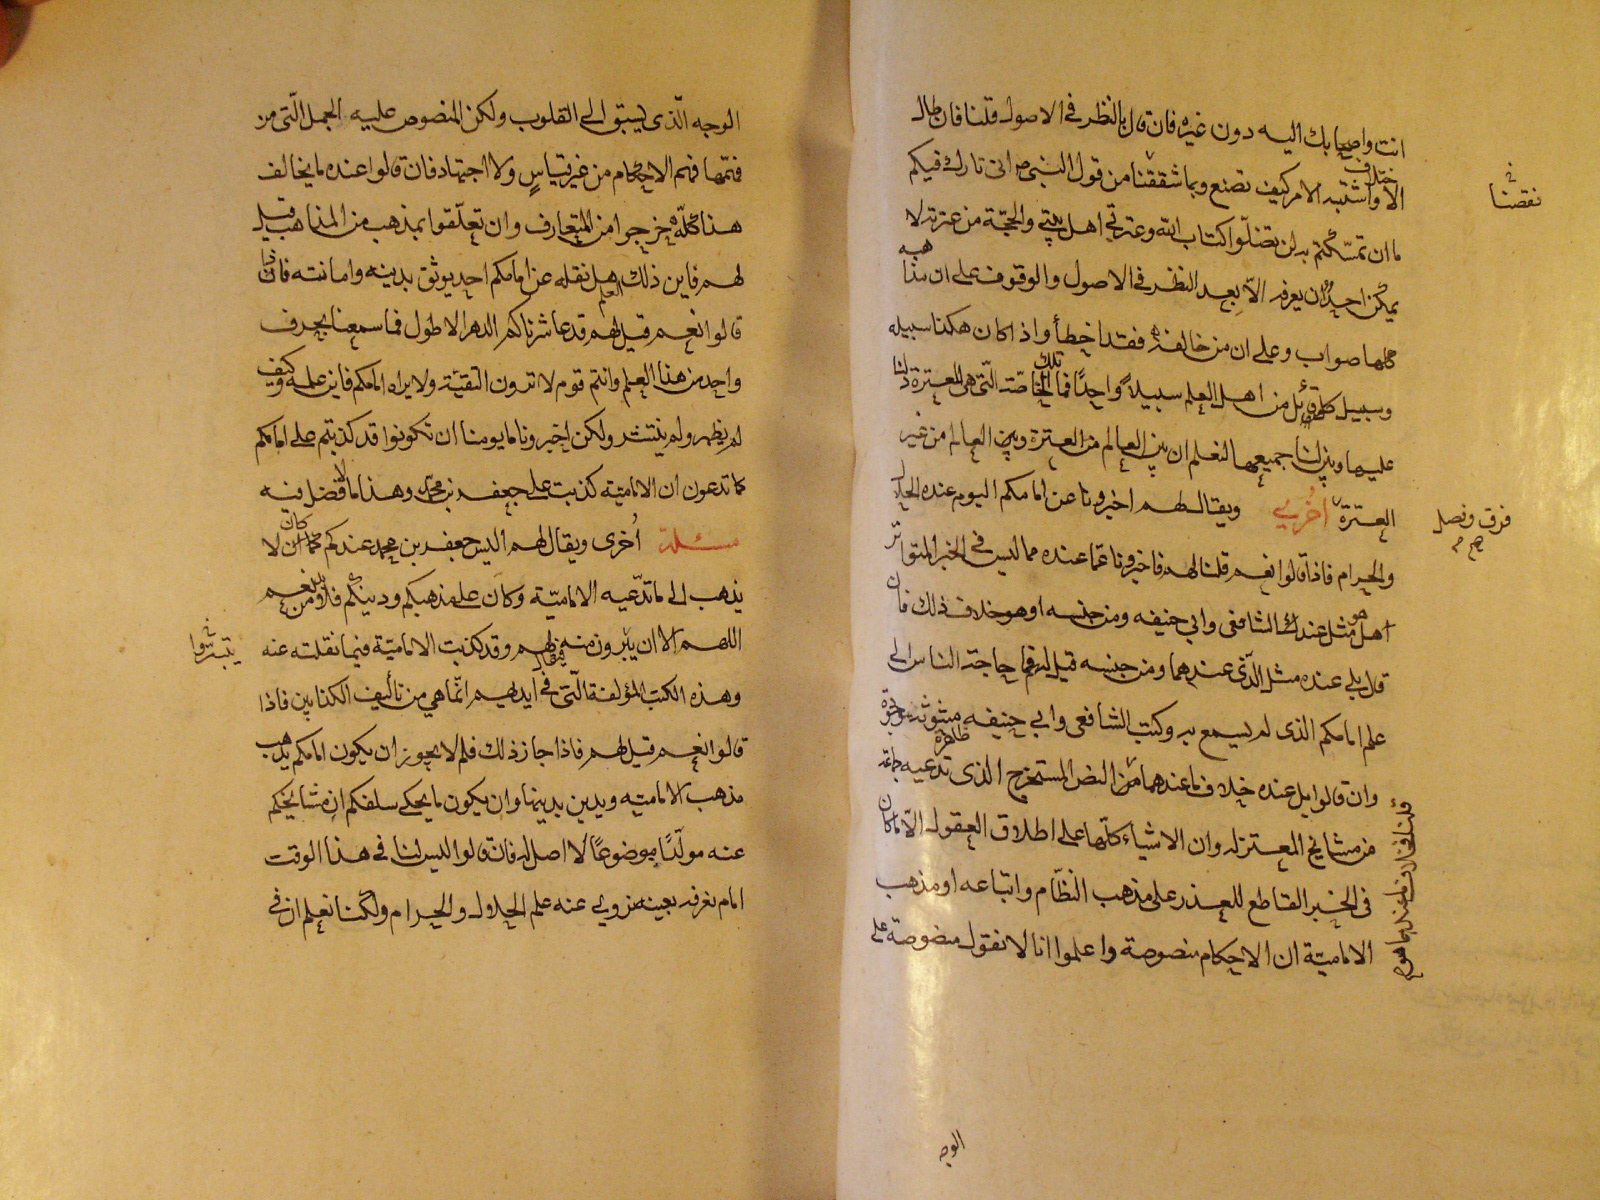 انت واصحابك اليه دون غيره فان قال بالنظر فى الاصول قلنا فان طال
الاختلاف واشتبه الامر كيف تصنع وبما شققنا من قول النبى ص انى تارك فيكم
ما ان تمسكتم به لن تضلّوا كتاب الله وعترتي اهل بيتي والحجّة من عترته لا
يمكن احدٌ ان يعرفه الاّ بعد النظر فى الاصول والوقوف على ان مذاهبه
كلها صواب وعلى ان من خالفه فقد اخطأ واذا كان هكذا سبيله
وسبيل كل قائل من اهل العلم سبيلاً واحدًا فما تلك الخاصّة التّى هى للعترة دلنا
عليها وبيّن لنا جميعها لنعلم ان بين العالم من العترة وبين العالم من غير
العترة اُخرى ويقال لهم اخبرونا عن امامكم اليوم عنده الحلال
والحرام فاذا قالوا نعم قلنا لهم فاخبرونا عمّا عنده مما ليس فى الخبر المتواتر
اهل هو مثل عند الشافعى وابي حنيفه ومن جنسه او هو خلاف ذلك فان
قال بلى عنده مثل الذّى عندهما ومن جنسه قيل لهم فما حاجة الناس الى
علم امامكم الذى لم يسمع به وكتب الشافعى وابى حنيفه ظاهرة مبثوثه موجودة
وان قالوا بل عنده خلاف ما عندهما من النص المستخرج الذى تدعيه جماعة
من مشايخ المعتزله وان الاشياء كلّها على اطلاق العقول الاّ ما كان
فى الخبر القاطع للعذر على مذهب النظّام واتباعه او مذهب
الاماميّة ان الاحكام منصوصة واعلموا انا لا نقول منصوصة على
نقضنا
فرق وفصل
قلنا فخلاف ما عندهما هو
الوجه
الوجه الّذى يسبق الى القلوب ولكن المنصوص عليه الجمل الّتى من
فهمها فهم الاحكام من غير قياسٍ ولا اجتهاد فان قالوا عنده ما يخالف
هذا كلّه خرجوا من المتعارف وان تعلّقوا بمذهب من المذاهب قيل
لهم فاين ذلك العلم هل نقله عن امامكم احد يوثق بدينه وامانته فان
قالوا نعم قيل لهم قد عاشرناكم الدهر الاطول فما سمعنا بحرف
واحد من هذا العلم وانتم قوم لا ترون التقيّة ولا يراه امامكم فاين علمه وكيف
لم يظهر ولم ينتشر ولكن اخبرونا ما يومنا ان تكونوا قد كذبتم على امامكم
كما تدعون ان الاماميّه كذبت على جعفر بن محمد وهذا ما لا فضل فيه
مسئلة اُخرى ويقال لهم اليس جعفر بن محمد عندكم كان لا
يذهب الى ما تدّعيه الاماميّة وكان على مذهبكم ودينكم فلابد من نعم
اللهم الا ان يبرون منه فيقال لهم وقد كذبت الاماميّة فيما نقلته عنه
وهذه الكتب المؤلفة الّتى فى ايديهم انّما هي من تأليف الكذابين فاذا
قالوا نعم قيل لهم فاذا جاز ذلك فلم لا يجوز ان يكون امامكم يذهب
مذهب الاماميّه ويدين بدينها وان يكون ما يحكى سلفكم ومشائخكم
عنه مولّدًا موضوعًا لا اصل له فان قالوا ليس لنا فى هذا الوقت
امام نعرفه بعينه نروي عنه علم الحلال والحرام ولكنا نعلم ان فى